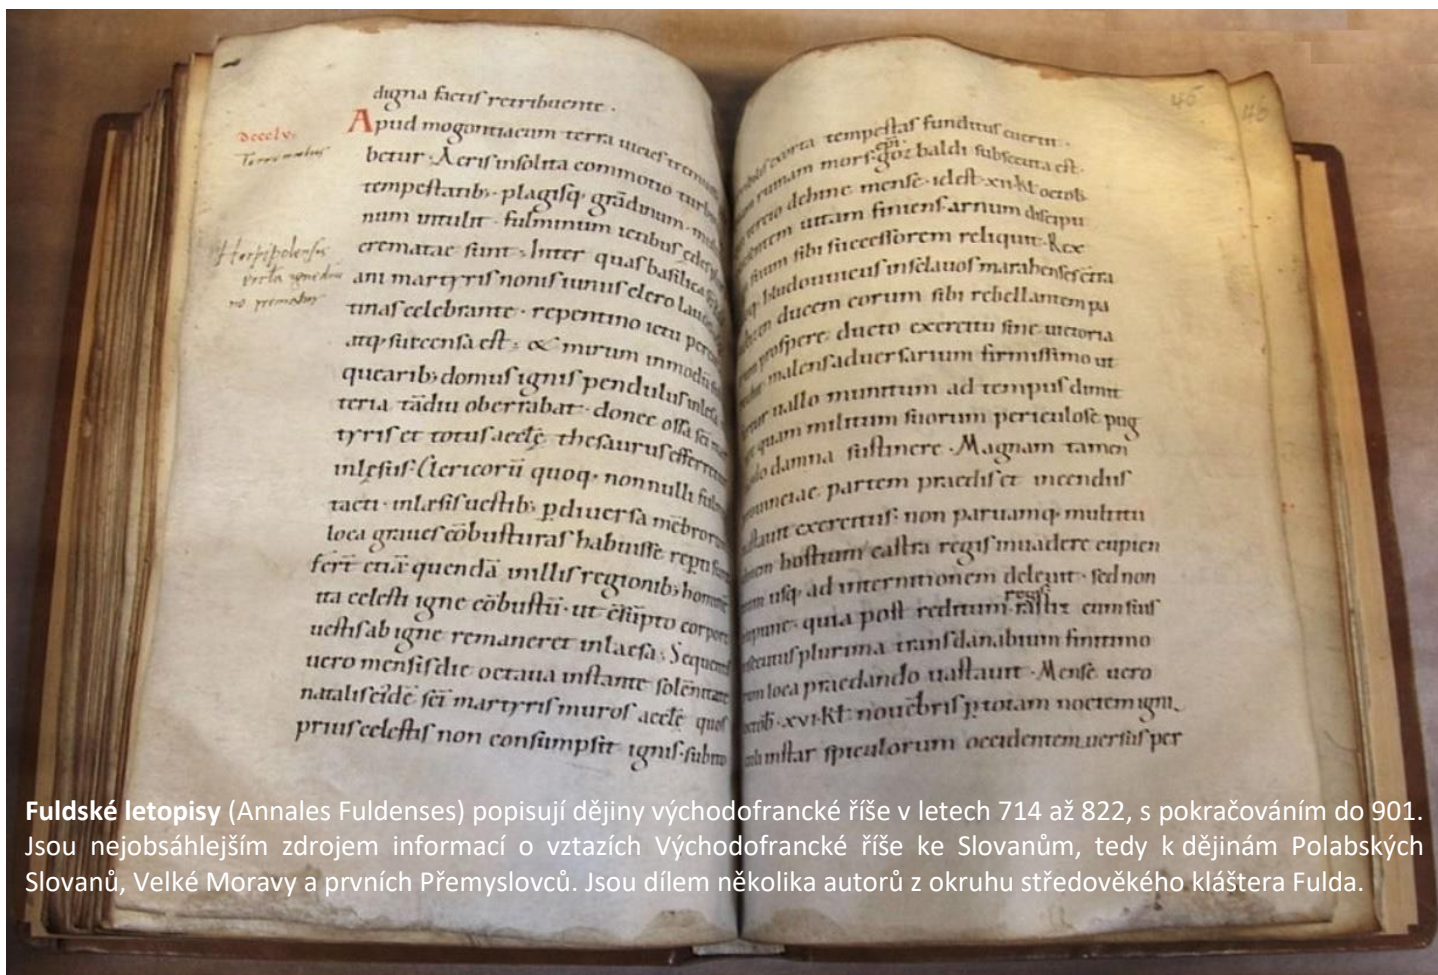 digna factis retribuente .
Apud mogontiacum terra vicies tremu
betur · Aeris insolita commotio turbi
tempestatib; · plagisq; grādinum · mul
num intulit · fulminum ictibus edes plu
crematae sunt · Inter quas basilica sc̄i
ani martyris nonis iunii clero laudes
tinas celebrante · repentino ictu percu
atq; succensa est ; & mirum inmodū
quearib; domus ignis pendulus inlesa
teria tādiu oberrabat · donec ossa sc̄i mar
tyris et totus aecclę thesaurus efferretur
inlęsus · Clericorū quoq; nonnulli fulm
tacti · inlæsis uestib; p diuersa mēbrorum
loca graues cōbusturas habuisse repti sunt
fert̄ etiā quendā in illis regionib; hominē
ita celesti igne cōbustū · ut cōsūpto corpore
uestis ab igne remaneret inlaesa ; Sequentis
uero mensis die octaua instante solēnitate
natalis eidē sc̄i martyris muros aecclę quos
prius celestis non consumpsit ignis · subito
dcccLv.
Terremotus
Herbipolensis
no
45
46
exorta tempestas funditus euertit ·
ruinam mors goz baldi subsecuta est ·
epī
tercio dehinc mense · idest · xii · kl̄ octob̄
uitam finiens arnum discipu
suum sibi successorem reliquit · Rex
hludouuicus insclauos marahenses contra
ducem eorum sibi rebellantem pa
prospere ducto exercitu sine uictoria
malens aduersarium firmissimo ut
uallo munitum ad tempus dimit
quam militum suorum periculose pug
damna sustinere · Magnam tamen
prouinciae partem praedis et incendiis
uastauit exercitus · non paruamq; multitu
hostium castra regis inuadere cupien
usq; ad internitionem deleuit · sed non
impune · quia post reditum rastiz cum suis
regis
insecutus plurima trans danabium finitimo
rum loca praedando uastauit · Mense uero
octob̄ · xvi · kl̄ nouēbris p totam noctem igni
culi instar spiculorum occidentem uersus per
Fuldské letopisy (Annales Fuldenses) popisují dějiny východofrancké říše v letech 714 až 822, s pokračováním do 901.
Jsou nejobsáhlejším zdrojem informací o vztazích Východofrancké říše ke Slovanům, tedy k dějinám Polabských
Slovanů, Velké Moravy a prvních Přemyslovců. Jsou dílem několika autorů z okruhu středověkého kláštera Fulda.